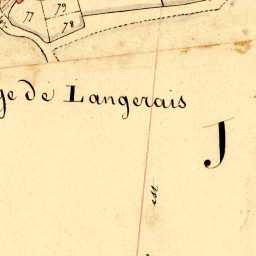 79
77
78
ge de Langerais
J